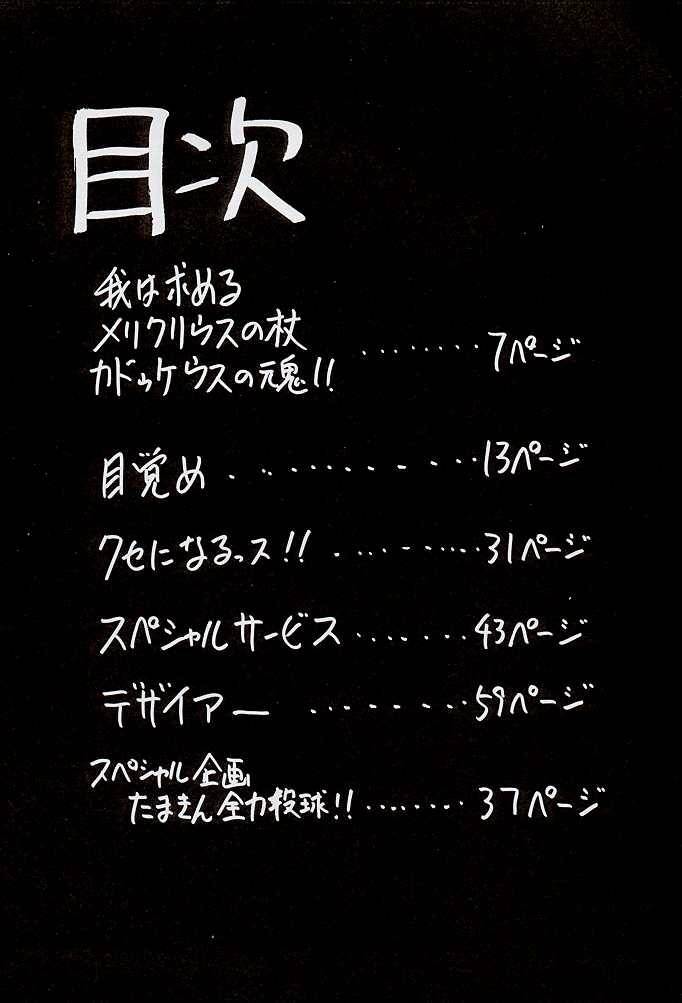 目次
我は求める
メリクリウスの杖
カドゥケウスの魂!! ........ 7ページ
目覚め ........... 13ページ
クセになるっス!! .......... 31ページ
スペシャルサービス ........ 43ページ
デザイアー ........ 59ページ
スペシャル企画
たまきん全力投球!! ......... 37ページ